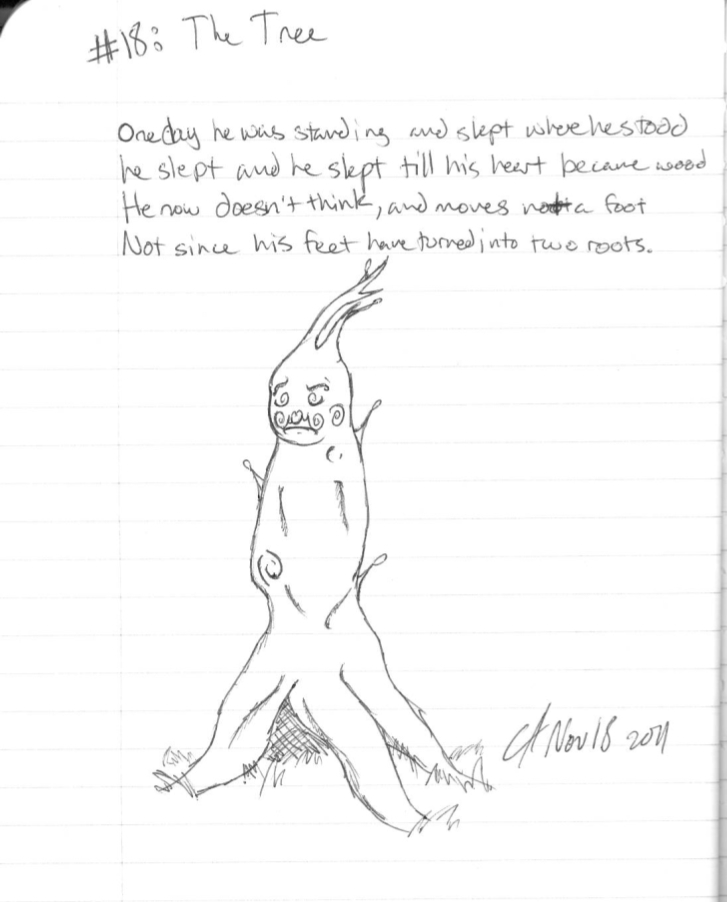 #18: The Tree
One day he was standing and slept where he stood
he slept and he slept till his heart became wood
He now doesn't think, and moves not a foot
Not since his feet have turned into two roots.
CA Nov 18 2011